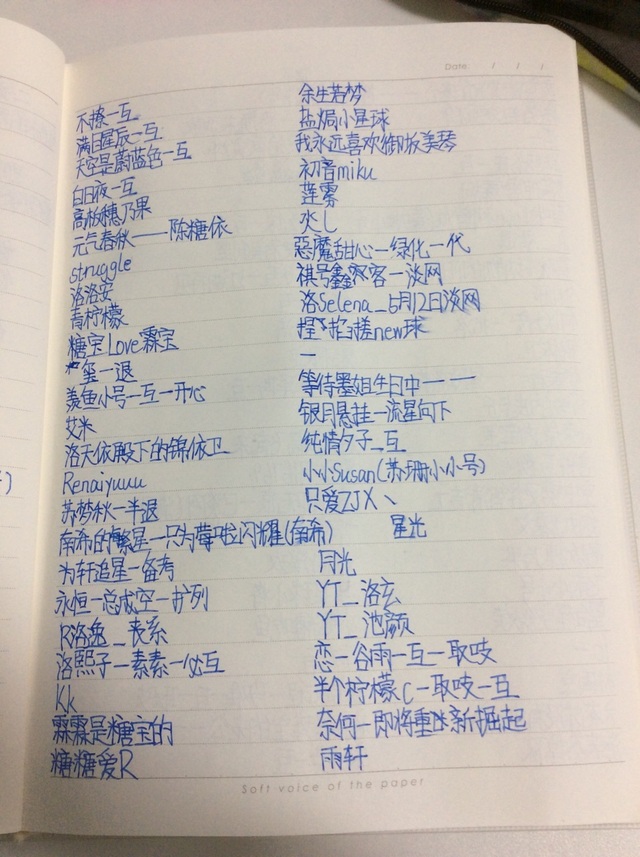 Date / / /
不撩一互
满目星辰一互
天空是蔚蓝色一互
白日夜一互
高板穗乃果
元气春秋——陈糖依
struggle
洛洛安
青柠檬
糖宝Love霖宝
玺一退
羡鱼小号一互一开心
艾米
洛天依殿下的锦依卫
Renaiyuuu
苏梦秋一半退
南希的繁星一只为莓啦闪耀(南希)
为轩追星一备考
永恒一总成空一扩列
R洛逸_表系
洛熙子_素素一必互
Kk
霖霖是糖宝的
糖糖爱R
余生若梦
盐焗小星球
我永远喜欢御坂美琴
初音miku
莲雾
火乚
惡魔甜心一绿化一代
祺号鑫窩客一淡网
洛Selena_5月12日淡网
捏掐搓new球
一
等待墨姐生日中一一
银月悬挂一流星向下
纯情夕子_互
小小Susan(苏珊小小号)
只爱ZJX丶
星光
月光
YT_洛玄
YT_池颜
恋一谷雨一互一取吱
半个柠檬c一取吱一互
奈何一即将重新掘起
雨轩
Soft voice of the paper